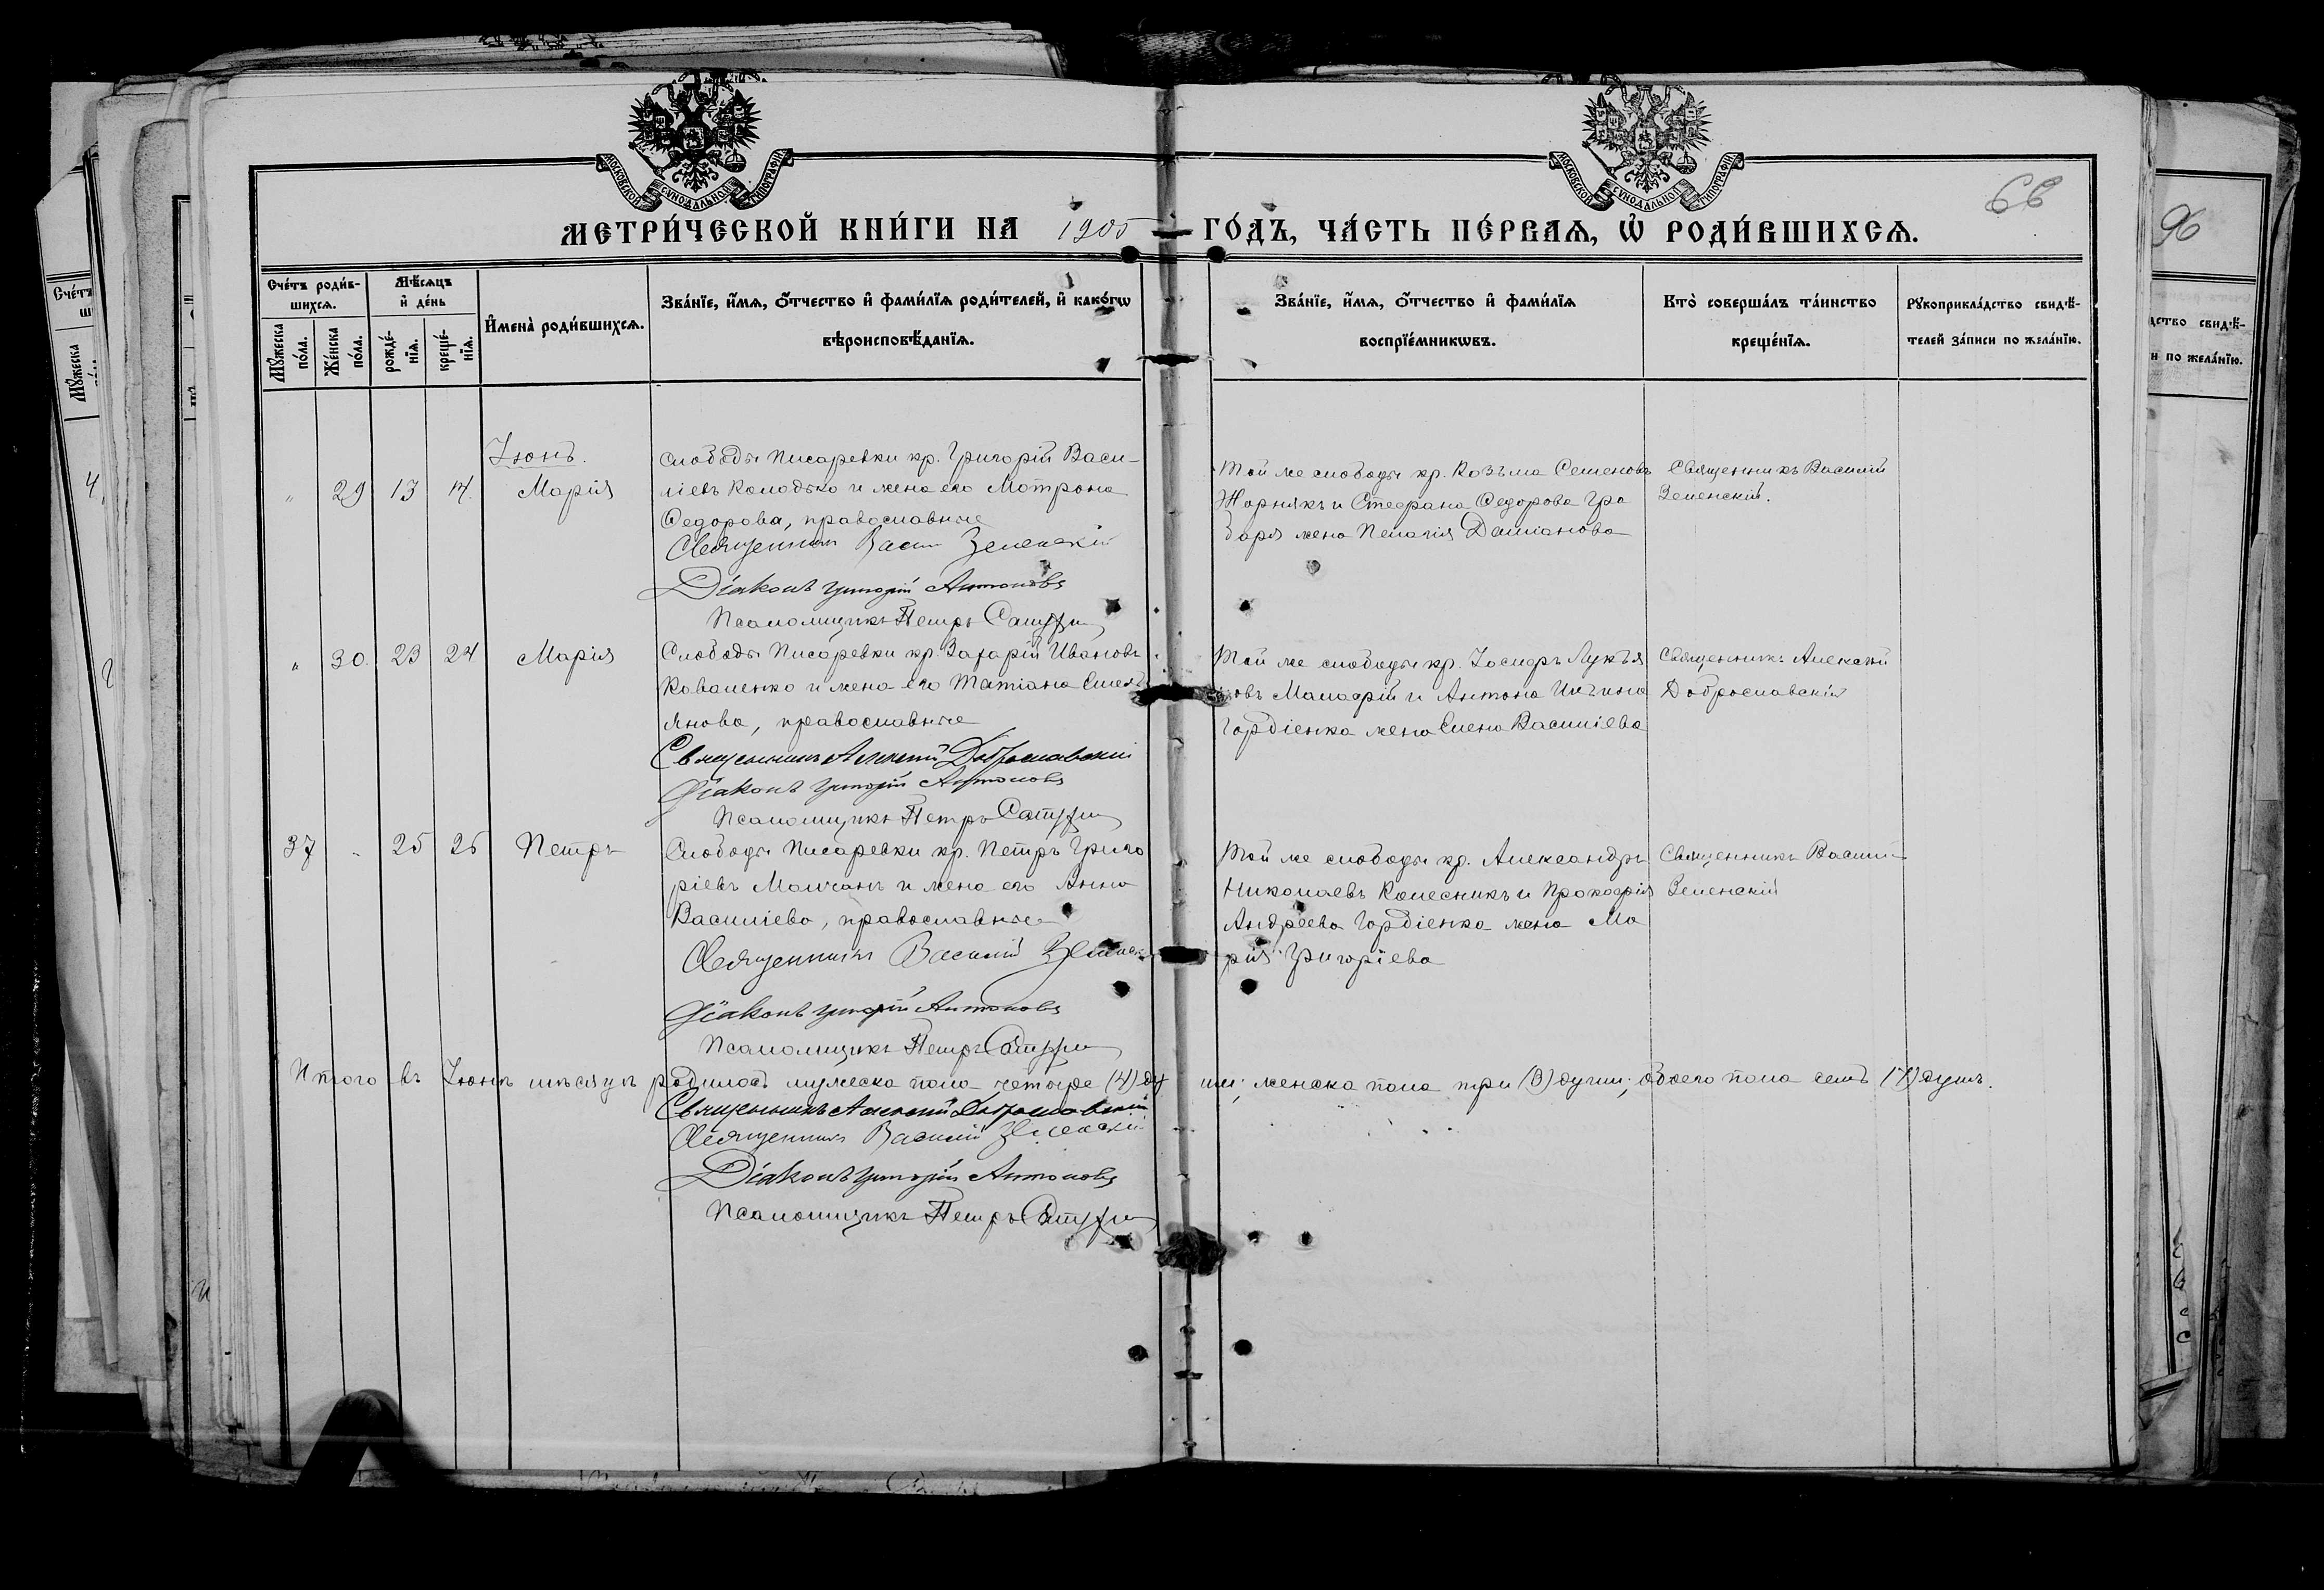 МОСКОВСКОЙ СѴНОДАЛЬНОЙ ТИПОГРАФІИ
МОСКОВСКОЙ СѴНОДАЛЬНОЙ ТИПОГРАФІИ
МЕТРИ́ЧЕСКОЙ КНИ́ГИ НА 1905 ГО́ДЪ, ЧА́СТЬ ПЕ́РВАѦ, Ѽ РОДИ́ВШИХСѦ.
66
96
Сче́тъ роди́в-
шихсѧ.
Мꙋ́жеска по́ла.
Же́нска по́ла.
Мѣ́сѧцъ
и҆ де́нь
рожде́-нїѧ.
креще́-нїѧ.
И҆мена̀ роди́вшихсѧ.
Зва́нїе, и҆́мѧ, ѻ҆́тчество и҆ фами́лїѧ роди́телей, и҆ како́гѡ
вѣроисповѣ́данїѧ.
Зва́нїе, и҆́мѧ, ѻ҆́тчество и҆ фами́лїѧ
воспрїе́мникѡвъ.
Кто̀ соверша́лъ та́инство
креще́нїѧ.
Рꙋкоприкла́дство свидѣ́-
телей за́писи по жела́нїю.
Іюнь.
" 29 13 14. Марія
Слободы Писаревки кр. Григорій Васи-
ліевъ Колодько и жена его Мотрона
Федорова, православные
Священникъ Васил Зеленскій
Діаконъ Григорій Антоновъ
Псаломщикъ Петръ
Той же слободы кр. Козьма Семеновъ
Жорнякъ и Стефана Федорова Гра
баря жена Пелагія Даміанова
Священникъ Василій
Зеленскій.
" 30. 23 24 Марія
Слободы Писаревки кр. Захарій Ивановъ
Коваленко и жена его Татіана Емель
янова, православные
Священникъ Алексій Доброславскій
Діаконъ Григорій Антоновъ
Псаломщикъ Петръ
Той же слободы кр. Іосифъ Лукья
новъ Малафій и Антона Ильина
Гордіенка жена Елена Василіева
Священникъ Алексій
Доброславскій
37 " 25 26 Петръ
Слободы Писаревки кр. Петръ Григо
ріевъ Молчанъ и жена его Анна
Василіева, православные
Священникъ Василій Зеленск
Діаконъ Григорій Антоновъ
Псаломщикъ Петръ
Той же слободы кр. Александръ
Николаевъ Колесникъ и Прокофія
Андреева Гордіенка жена Ма
рія Григоріева
Священникъ Васил
Зеленскій
Итого въ Іюнѣ мѣсяцѣ родилось мужеска пола четыре (4) ду ши; женска пола три (3) души; обоего пола семь (7) душъ.
Священникъ Алексій Доброславскій
Священникъ Василій Зеленскій
Діаконъ Григорій Антоновъ
Псаломщикъ Петръ